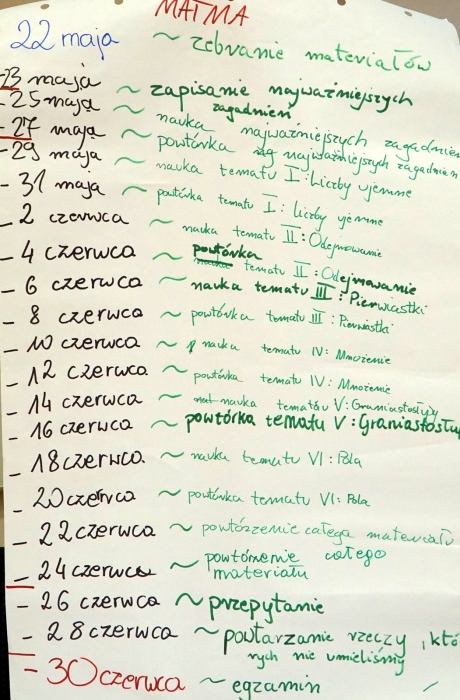 MATMA
22 maja ~ zebranie materiałów
- 23 maja
- 25 maja ~ zapisanie najważniejszych zagadnień
- 27 maja ~ nauka najważniejszych zagadnień
- 29 maja ~ powtórka najważniejszych zagadnień
- 31 maja ~ nauka tematu I: Liczby ujemne
- 2 czerwca ~ powtórka tematu I: liczby ujemne
- 4 czerwca ~ nauka tematu II: Odejmowanie
- 6 czerwca ~ powtórka tematu II: Odejmowanie
- 8 czerwca ~ nauka tematu III: Pierwiastki
- 10 czerwca ~ powtórka tematu III: Pierwiastki
- 12 czerwca ~ nauka tematu IV: Mnożenie
- 14 czerwca ~ powtórka tematu IV: Mnożenie
- 16 czerwca ~ nauka tematu V: Graniastosłupy
~ powtórka tematu V: Graniastosłup
- 18 czerwca ~ nauka tematu VI: Pola
- 20 czerwca ~ powtórka tematu VI: Pola
- 22 czerwca ~ powtórzenie całego materiału
- 24 czerwca ~ powtórzenie całego materiału
- 26 czerwca ~ przepytanie
- 28 czerwca ~ powtarzanie rzeczy, któ
rych nie umieliśmy
- 30 czerwca ~ egzamin